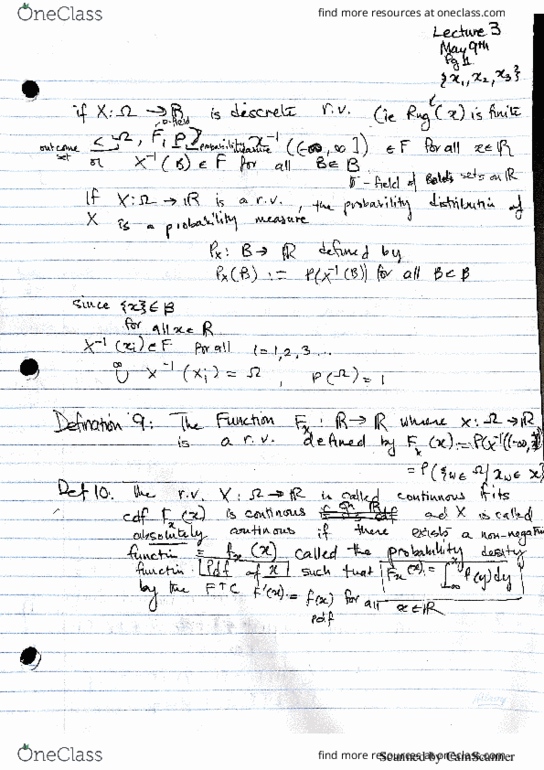 OneClass
find more resources at oneclass.com
Lecture 3
May 9th
Pg 1
{x₁, x₂, x₃}
if X: Ω → ℝ is discrete r.v. (ie Rng(x) is finite
σ-field
outcome set < Ω, F, P> probability measure X⁻¹((-∞, x]) ∈ F for all x∈ℝ
or X⁻¹(B) ∈ F for all B∈B
σ-field of sets on ℝ
If X: Ω → ℝ is a r.v., the probability distribution of
X is a probability measure
Pₓ: B → ℝ defined by
Pₓ(B) := P(X⁻¹(B)) for all B∈B
Since {x}∈B
for all x∈ℝ
X⁻¹(xᵢ)∈F for all i=1,2,3...
∞
∪ X⁻¹(xᵢ) = Ω, P(Ω)=1
Defination 9: The Function Fₓ: ℝ→ℝ where X: Ω→ℝ
is a r.v. defined by Fₓ(x) = P(X⁻¹((-∞, x]
= P({w∈Ω | x
Def 10. The r.v. X: Ω→ℝ is called continuous if its
cdf Fₓ(x) is continous on ℝ and X is called
absolutely continous if there exists a non-negative
function = fₓ(x) called the probability desity
function Pdf of x such that Fₓ(x) = ∫ f(y)dy
by the FTC F'(x) = f(x) for all x∈ℝ
pdf
OneClass
find more resources at oneclass.com
Scanned by CamScanner